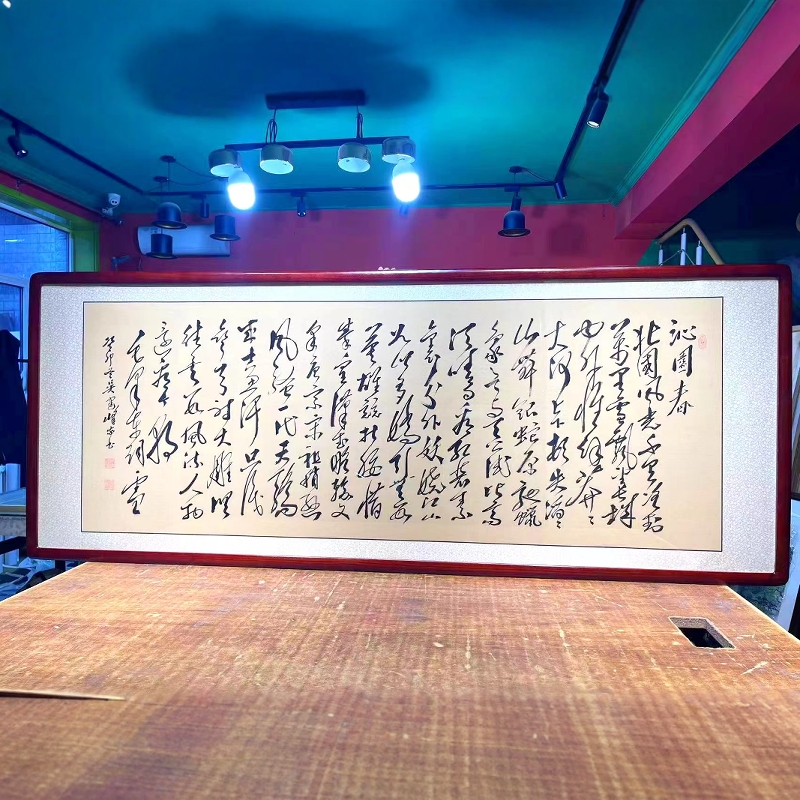 沁園春
北國風光千里冰封
萬里雪飄望長城
内外惟餘莽〻
大河上下頓失滔〻
山舞銀蛇原馳蠟
象欲與天公試比高
須晴日看紅裝素
裹分外妖嬈江山
如此多嬌引無數
英雄競折腰惜
秦皇漢武略輸文
采唐宗宋祖稍遜
風騷一代天驕
成吉思汗只識
彎弓射大雕俱
往矣數風流人物
還看今朝
毛澤東詞雪
癸卯年